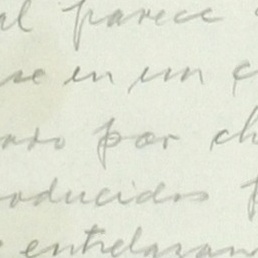 al parece
se en un c
ado por ch
oducidos p
entrelazan